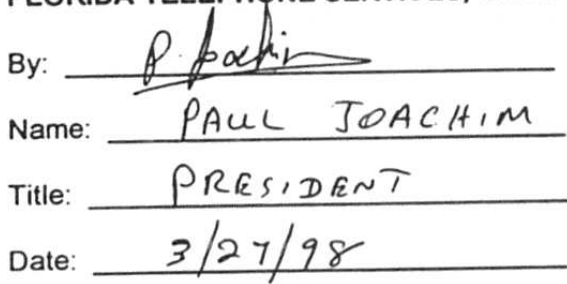 By: P. Joachim
Name: PAUL JOACHIM
Title: PRESIDENT
Date: 3/27/98